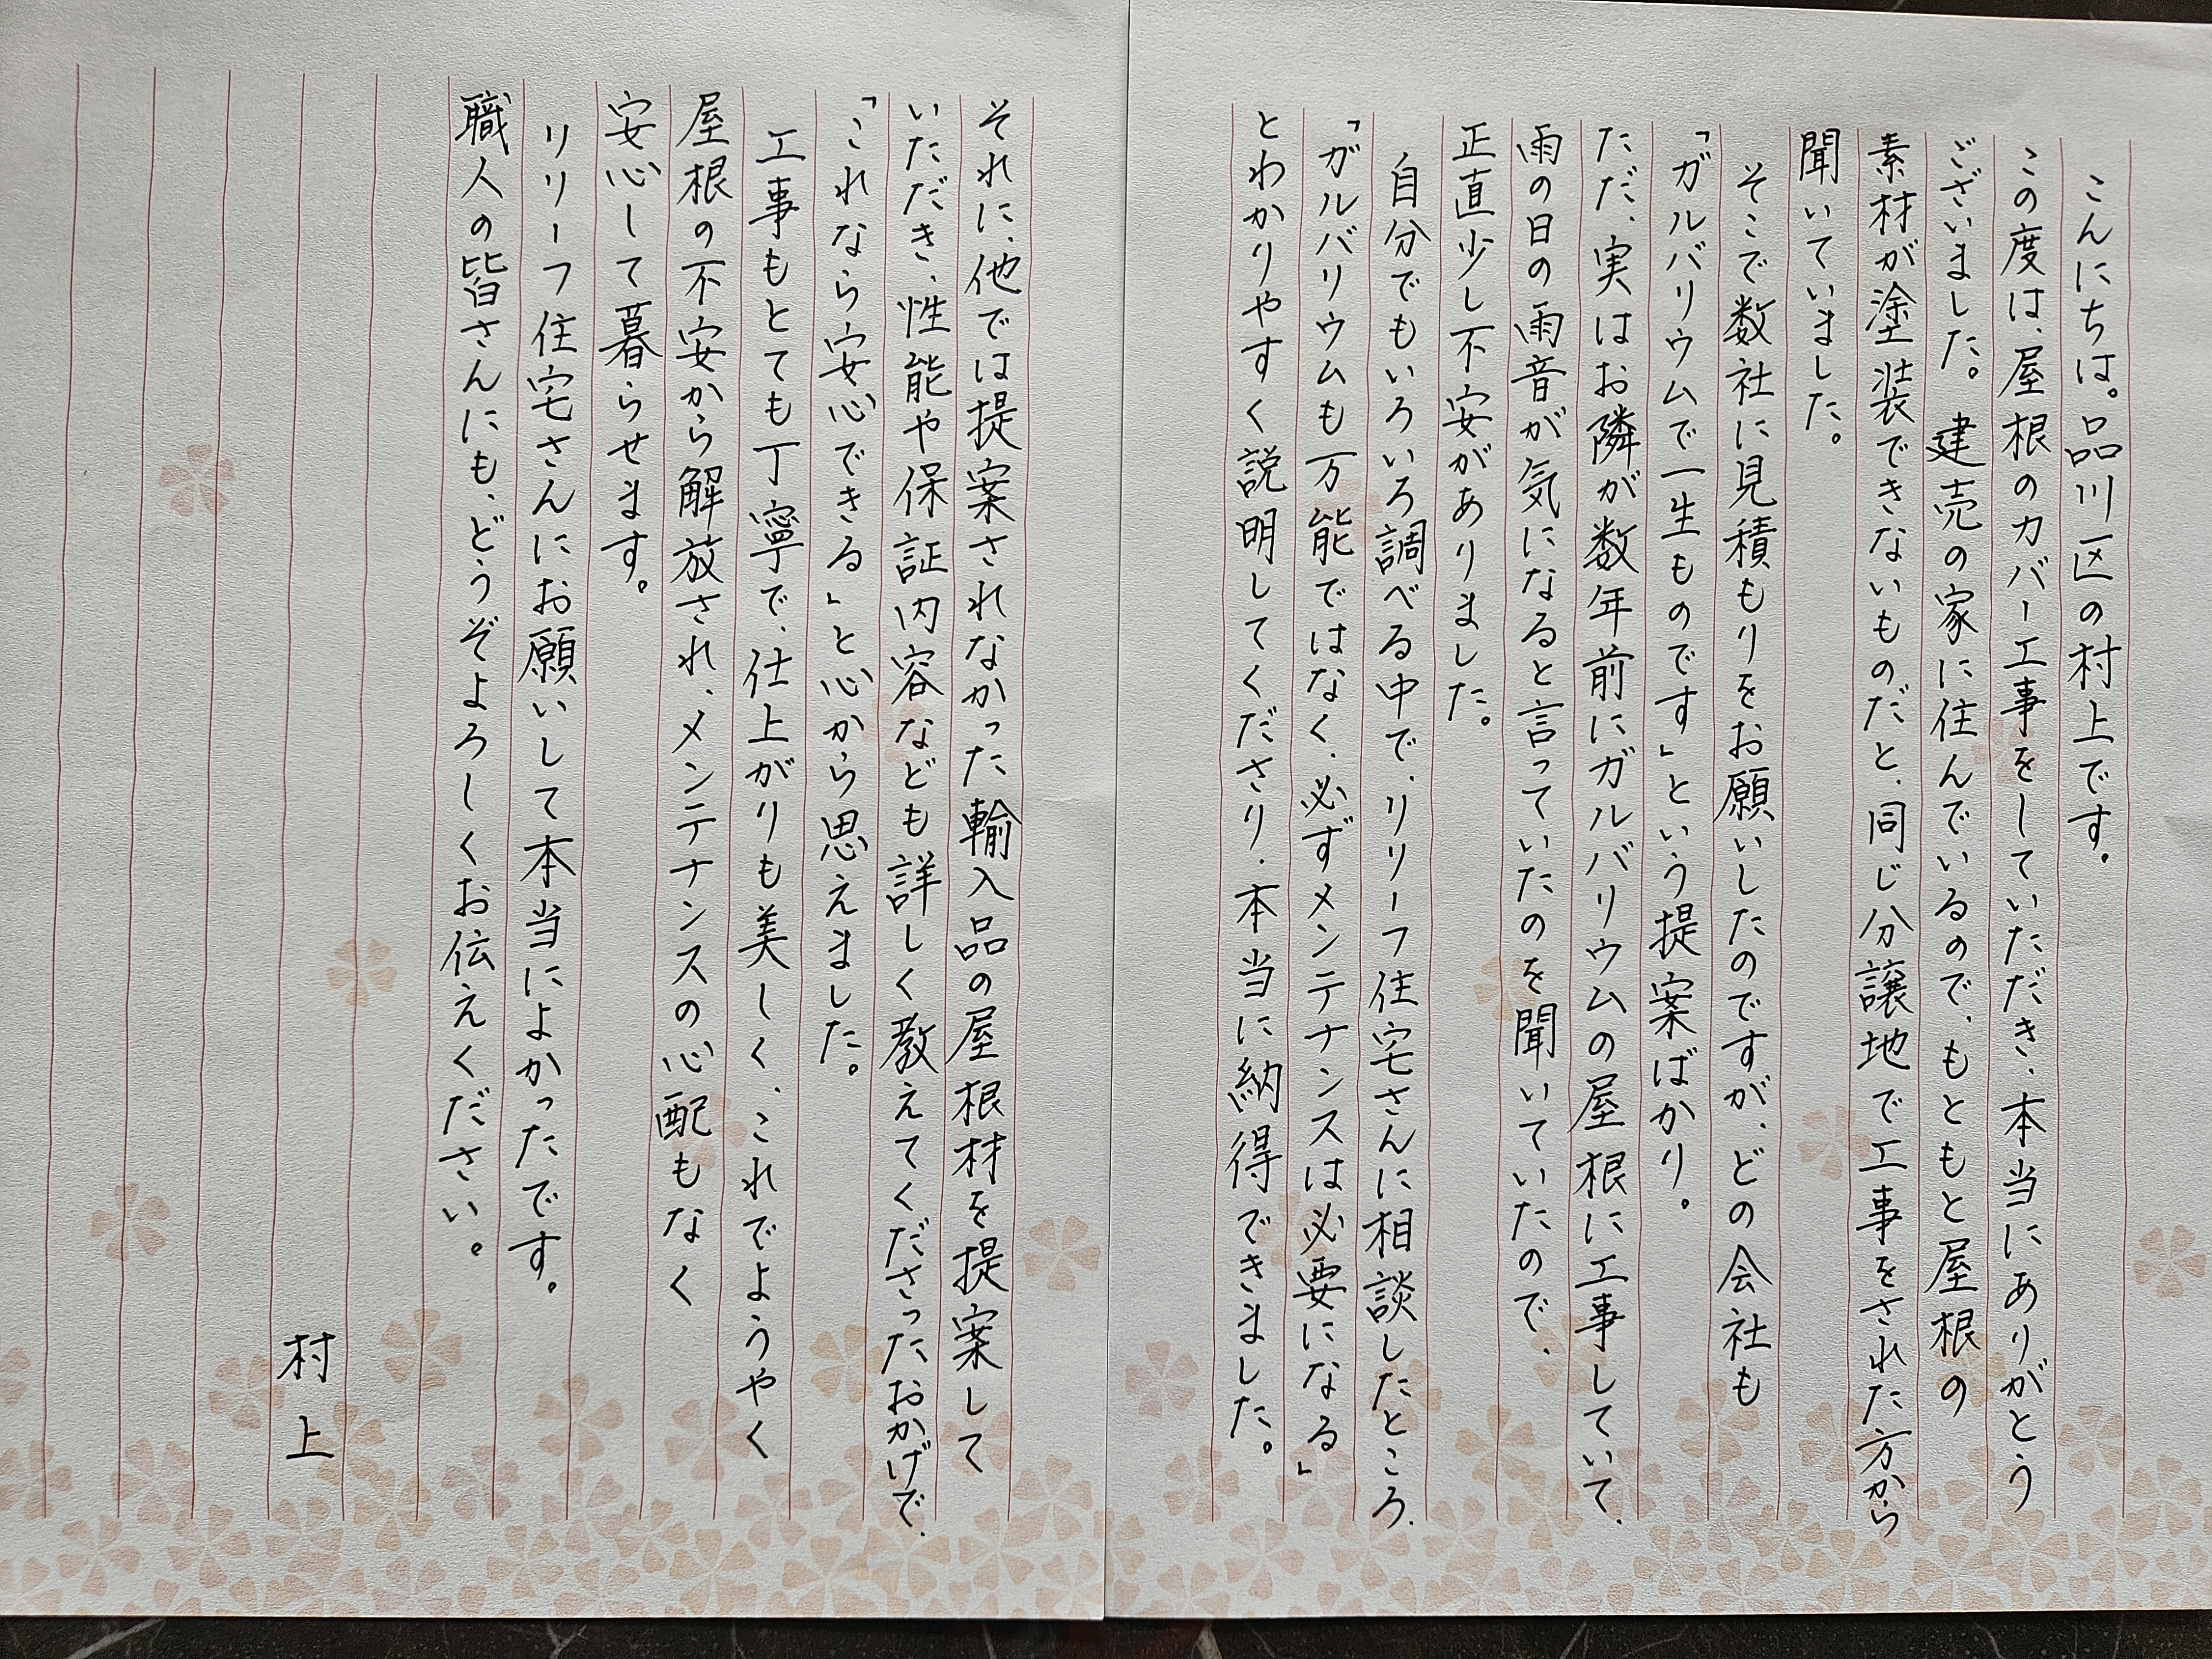 こんにちは。品川区の村上です。
この度は、屋根のカバー工事をしていただき、本当にありがとう
ございました。建売の家に住んでいるので、もともと屋根の
素材が塗装できないものだと、同じ分譲地で工事をされた方から
聞いていました。
そこで数社に見積もりをお願いしたのですが、どの会社も
「ガルバリウムで一生ものです」という提案ばかり。
ただ、実はお隣が数年前にガルバリウムの屋根に工事していて、
雨の日の雨音が気になると言っていたのを聞いていたので、
正直少し不安がありました。
自分でもいろいろ調べる中で、リリーフ住宅さんに相談したところ、
「ガルバリウムも万能ではなく、必ずメンテナンスは必要になる」
とわかりやすく説明してくださり、本当に納得できました。
それに、他では提案されなかった輸入品の屋根材を提案して
いただき、性能や保証内容なども詳しく教えてくださったおかげで、
「これなら安心できる」と心から思えました。
工事もとても丁寧で、仕上がりも美しく、これでようやく
屋根の不安から解放され、メンテナンスの心配もなく
安心して暮らせます。
リリーフ住宅さんにお願いして本当によかったです。
職人の皆さんにも、どうぞよろしくお伝えください。
村上